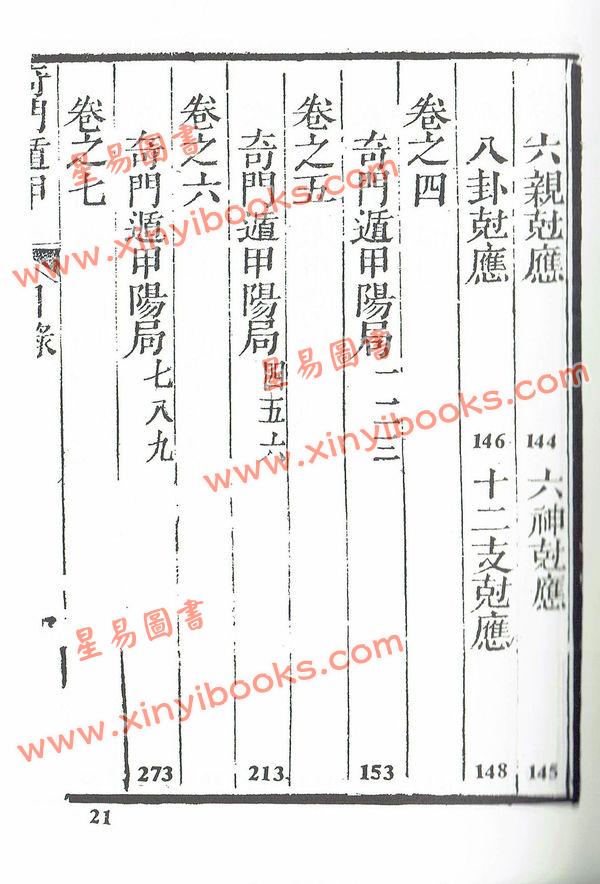 六親尅應 144 六神尅應 145
八卦尅應 146 十二支尅應 148
卷之四
奇門遁甲陽局 一二三 153
卷之五
奇門遁甲陽局 四五六 213
卷之六
奇門遁甲陽局 七八九 273
卷之七
奇門遁甲 目錄
21
星易圖書
www.xinyibooks.com
星易圖書
www.xinyibooks.com
星易圖書
www.xinyibooks.com